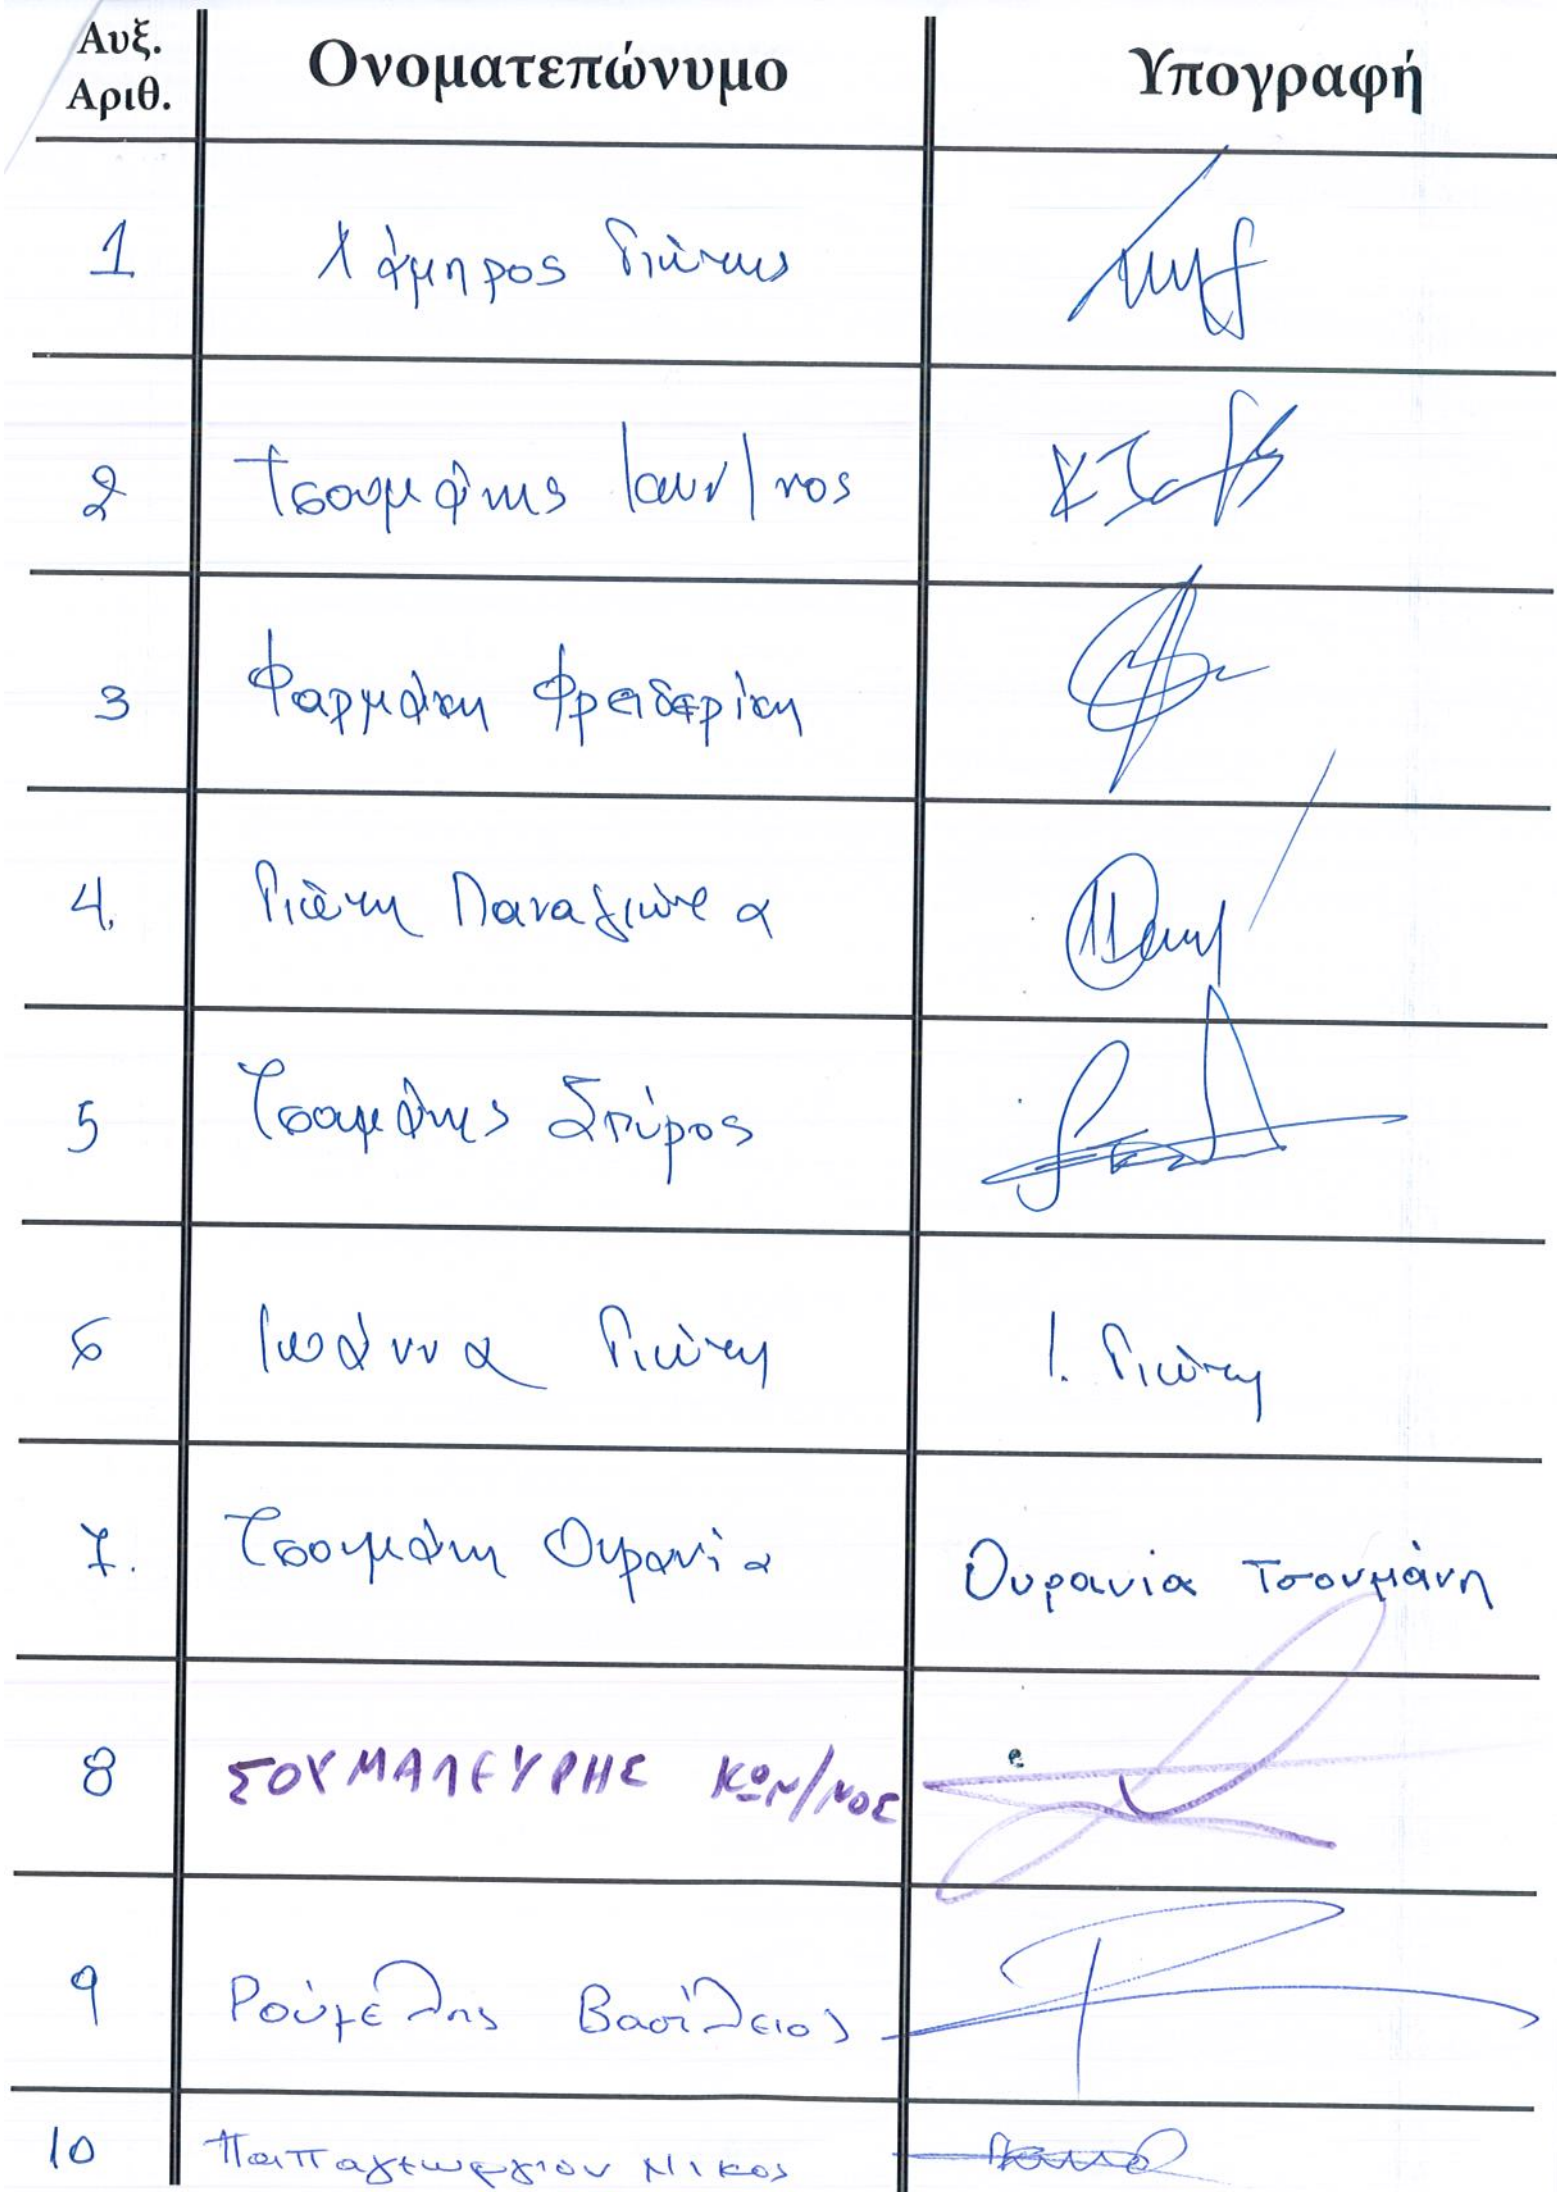 Αυξ. Αριθ. Ονοματεπώνυμο Υπογραφή
1 Λάμπρος Γιώτης
2 Τσουμάνης Κων/νος
3 Φαρμάκη Φρειδερίκη
4. Γιώτη Παναγιώτα
5 Τσουμάνης Σπύρος
6 Ιωάννα Γιώτη Ι. Γιώτη
7. Τσουμάνη Ουρανία Ουρανία Τσουμάνη
8 ΣΟΥΜΑΛΕΥΡΗΣ ΚΩΝ/ΝΟΣ
9 Ρούμελης Βασίλειος
10 Παπαγεωργίου Νικος